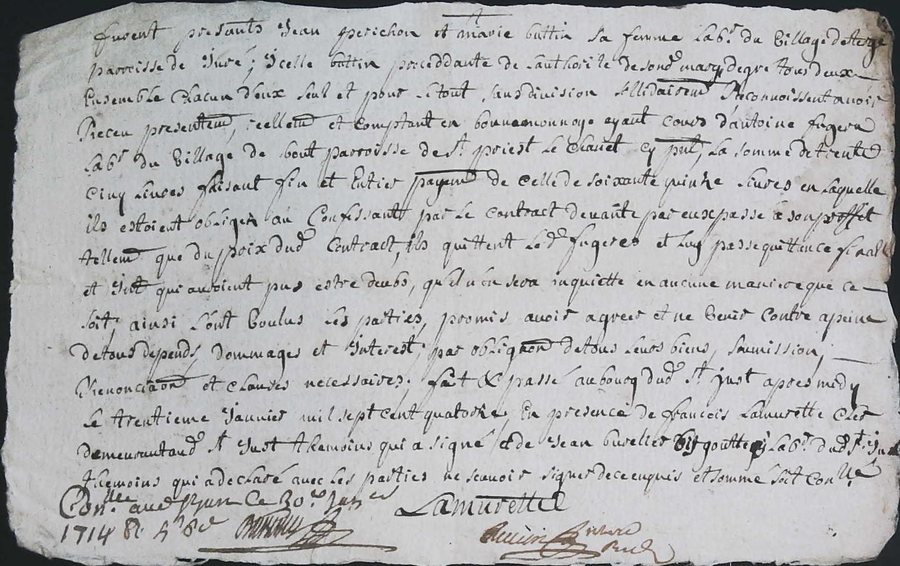 furent presants Jean perichon et marie buttin sa femme Lab.r du Village de
parroisse de Juré; Jcelle buttin proceddante de Lauthorité de sond.t mary degre tous deux
Ensemble chacun deux seul et pour Le tout, sans division sollidairem.t Recconnoissent avoir
Receu presentem.t, reellem.t et comptant en bonne monnoye ayant cours d'antoine fugere
Lab.r du Village de bout parroisse de S.t priest La somme de trente
cinq Livres faisant fin et Entier payem.t de celle de soixante quinze Livres en Laquelle
ils estoient obligez au Confessant par Le contract de vante par eux passe à son proffit
tellem.t que du prix dud.t Contract, ils quittent Led.t fugeres et Luy passe quittance finalle
et Jnt qui auroient pus estre deubs, qu'il n'en sera inquietté en aucune maniere que ce
soit, ainsi Lont Voulus Les parties, promis avoir agreer et ne Venir Contre a peine
de tous depends, dommages et Interest, par obligaon de tous leurs biens, soumission,
Renonciaon et clauses necessaires. fait & passé au bourcq dud.t S.t just apres midy
Le trentieme Janvier mil sept cent quatorze En presence de françois Lamurette Clerc
demeurant aud.t S.t Just thesmoins qui a signé & de Jean Lab.r dud.t S.t Just
thesmoins qui a declaré avec Les parties ne scavoir signer de ce enquis et sommé soit Con.llé
Con.llé aud. Ce 30.e Janv.er
1714
Lamurette